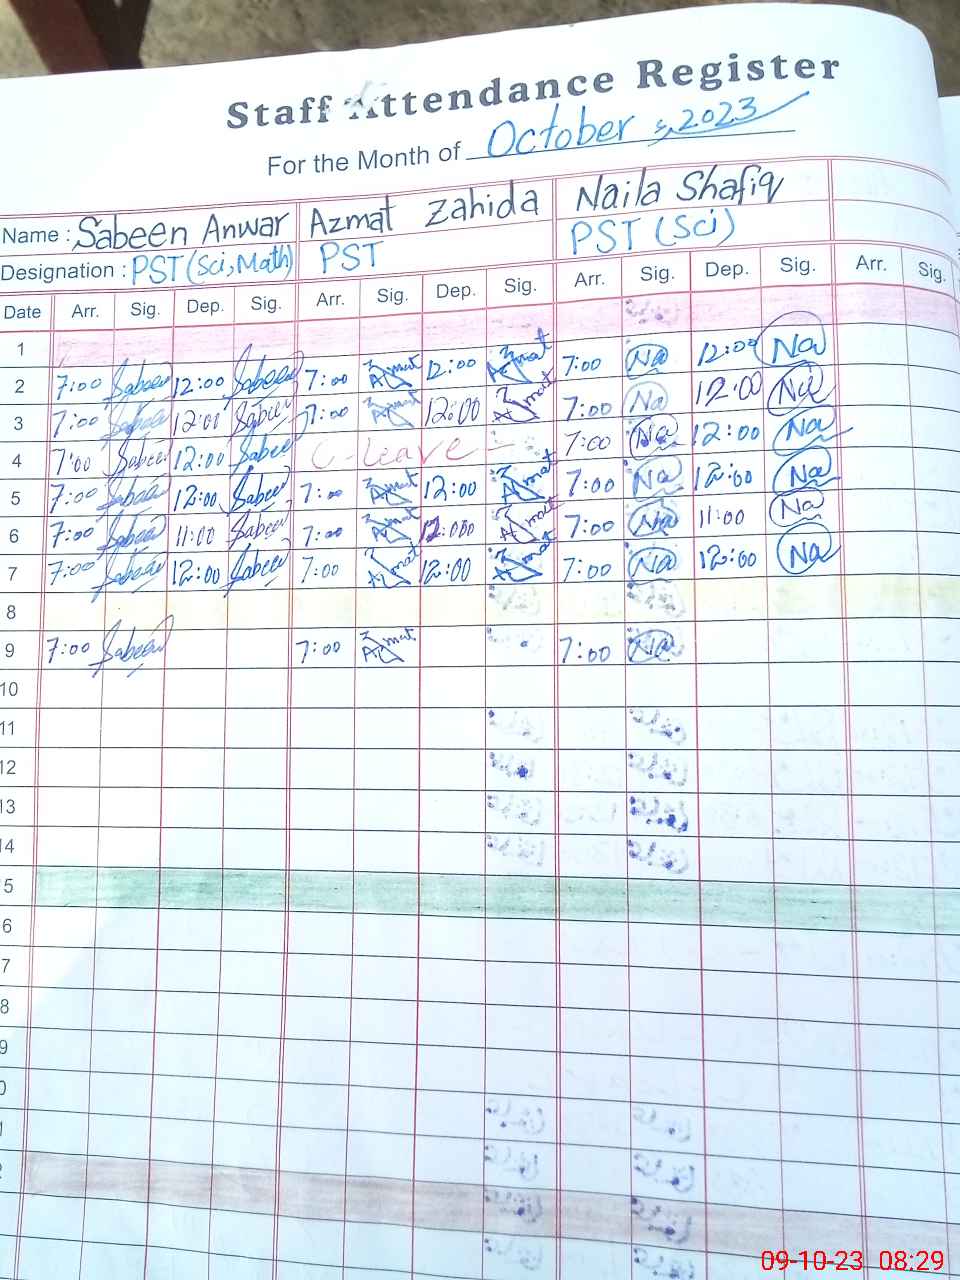 Staff Attendance Register
For the Month of October, 2023
Name : Sabeen Anwar Azmat Zahida Naila Shafiq
Designation : PST (Sci, Math) PST PST (Sci)
Date Arr. Sig. Dep. Sig. Arr. Sig. Dep. Sig. Arr. Sig. Dep. Sig. Arr. Sig.
1
2 7:00 Sabeen 12:00 Sabeen 7:00 Azmat 12:00 Azmat 7:00 Na 12:00 Na
3 7:00 Sabeen 12:00 Sabeen 7:00 Azmat 12:00 Azmat 7:00 Na 12:00 Na
4 7:00 Sabeen 12:00 Sabeen C-leave - 7:00 Na 12:00 Na
5 7:00 Sabeen 12:00 Sabeen 7:00 Azmat 12:00 Azmat 7:00 Na 12:00 Na
6 7:00 Sabeen 11:00 Sabeen 7:00 Azmat 12:000 Azmat 7:00 Na 11:00 Na
7 7:00 Sabeen 12:00 Sabeen 7:00 Azmat 12:00 Azmat 7:00 Na 12:00 Na
8
9 7:00 Sabeen 7:00 Azmat 7:00 Na
10
11
12
13
14
5
6
7
8
9
0
1
2
09-10-23 08:29